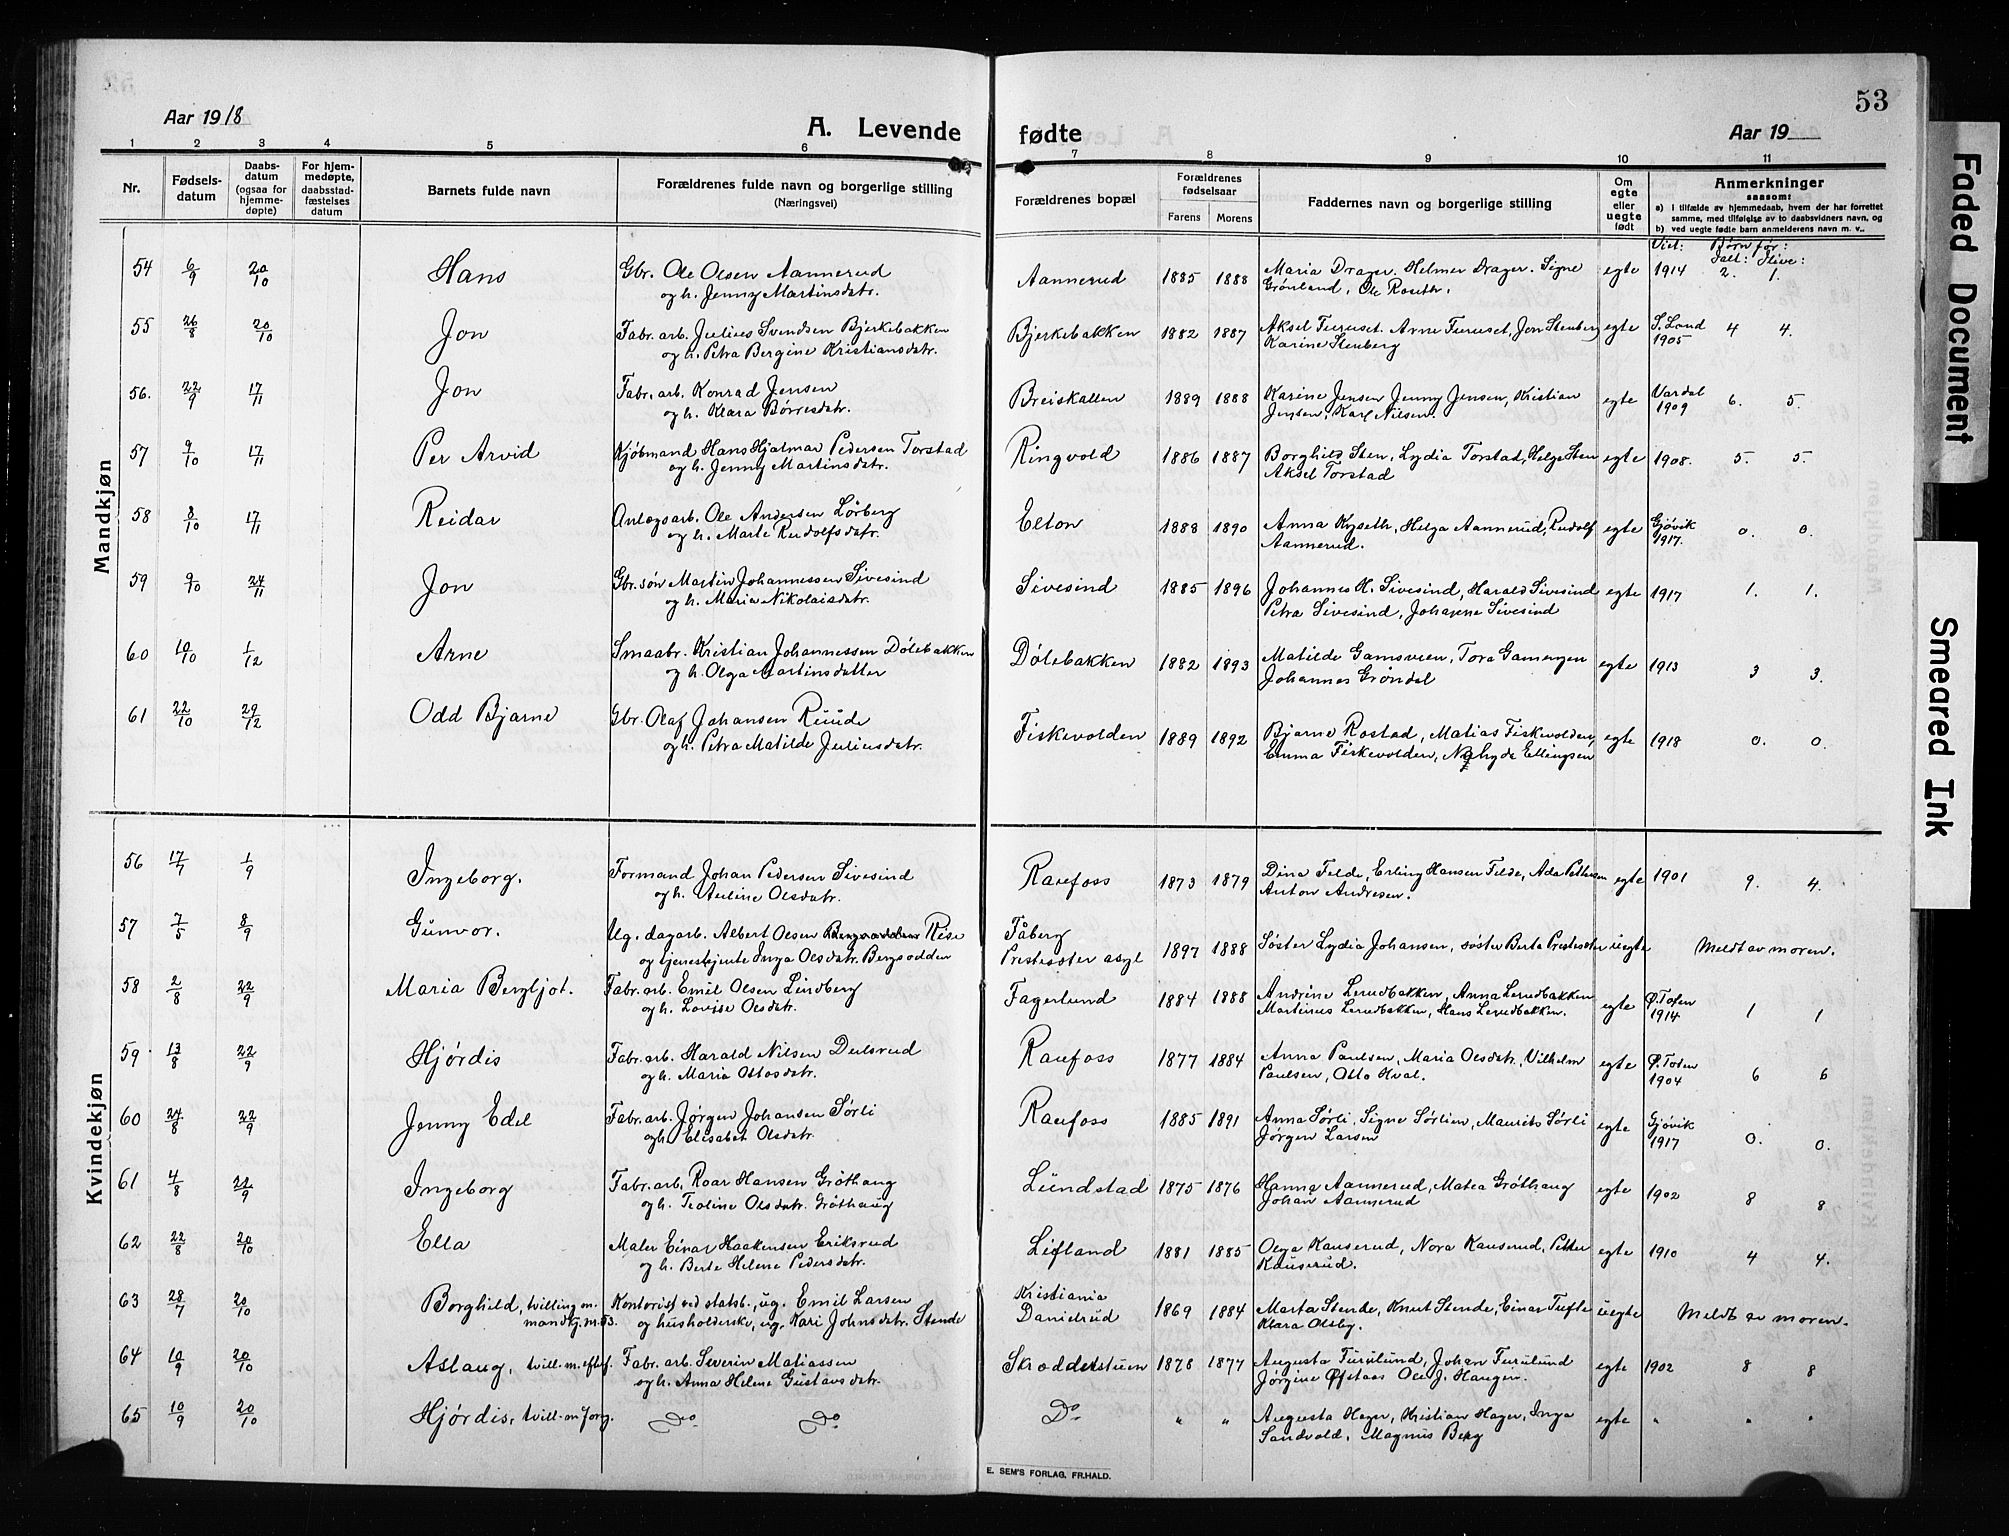 53
Aar 1918
A. Levende fødte
Aar 19
1 2 3 4 5 6 7 8 9 10 11
Nr.
Fødsels-datum
Daabs-datum (ogsaa for hjemme-døpte)
For hjem-medøpte, daabsstad-fæstelses datum
Barnets fulde navn
Forældrenes fulde navn og borgerlige stilling (Næringsvei)
Forældrenes bopæl
Forældrenes fødselsaar
Farens Morens
Faddernes navn og borgerlige stilling
Om egte eller uegte født
Anmerkninger saasom:
a) I tilfælde av hjemmedaab, hvem der har forrettet samme, med tilføielse av to daabsvidners navn, og
b) ved uegte fødte barn anmelderens navn m. v..
Viet: Børn før:
Ialt: Ilive:
Mandkjøn
54 6/9 20/10 Hans Gbr. Ole Olsen Aannerud Aannerud 1885 1888 Maria Drager. Helmer Drager. Signe egte 1914 2. 1.
og h. Jenny Martinsdatr. Grønland, Ole Roseth.
55 26/8 20/10 Jon Fabr. arb. Julius Svendsen Bjerkebakken Bjerkebakken 1882 1887 Aksel Furuset. Arne Furuset, Jon Stenberg egte S. Land 4 4.
og h. Petra Bergine Kristiansdatr. Karine Stenberg 1905
56. 22/9 17/11 Jon Fabr. arb. Konrad Jensen Breiskallen 1889 1888 Karine Jensen Jenny Jensen, Kristian egte Vardal 6. 5.
og h. Klara Børresdatr. Jensen, Karl Nilsen. 1909
57 9/10 17/11 Per Arvid Kjøbmand Hans Hjalmar Pedersen Torstad Ringvold 1886 1887 Borghild Sten, Lydia Torstad, Helge Sten egte 1908. 5. 5.
og h. Jenny Martinsdatr. Aksel Torstad
58 8/10 17/11 Reidar Anlægsarb. Ole Andersen Lørberg Elton 1888 1890 Anna Kyseth, Helga Aannerud, Rudolf egte Gjøvik 0. 0.
og h. Marte Rudolfsdatr. Aannerud. 1917.
59 9/10 24/11 Jon Gbr. søn Martin Johannessen Sivesind Sivesind 1885 1896 Johannes H. Sivesind, Harald Sivesind egte 1917 1. 1.
og h. Maria Nikolaisdatr. Petra Sivesind, Johanne Sivesind
60 10/10 1/12 Arne Smaabr. Kristian Johannessen Dølebakken Dølebakken 1882 1893 Matilde Gamsveen, Tora Gamengen egte 1913 3 3.
og h. Olga Martinsdatter Johannes Grøndal
61 22/10 29/12 Odd Bjarne Gbr. Olaf Johansen Ruude Fiskevolden 1889 1892 Bjarne Rostad, Matias Fiskevolden, egte 1918 0. 0.
og h. Petra Matilde Juliusdatr. Emma Fiskevolden, Ellingsen
Kvindekjøn
56 17/7 1/9 Ingeborg. Formand Johan Pedersen Sivesind Raufoss 1873 1879 Dina Felde, Erling Hansen Felde, Ada Pettersen egte 1901 9. 4.
og h. Auline Olsdatr. Anton Andresen.
57 7/5 8/9 Gunvor. Ug. dagarb. Albert Olsen Rise Fåberg Prestesæter asyl 1897 1888 Søster Lydia Johansen, søster Berta Prestesæter uegte Meldt av moren.
og tjenestejente Inga Olsdatr. Bergsodden
58 2/8 22/9 Maria Bergljot. Fabr. arb. Emil Olsen Lindberg Fagerlund 1884 1888 Andrine Lerudbakken, Anna Lerudbakken egte Ø. Toten 1 1
og h. Lovise Olsdatr. Martinus Lerudbakken, Hans Lerudbakken. 1914
59 13/8 22/9 Hjørdis Fabr. arb. Harald Nilsen Dulsrud Raufoss 1877 1884 Anna Paulsen, Maria Olsdatr, Vilhelm egte Ø. Toten 6 6
og h. Maria Ottosdatr. Paulsen, Otto Hval. 1904
60 24/8 22/9 Jenny Edel Fabr. arb. Jørgen Johansen Sørli Raufoss 1885 1891 Anna Sørli, Signe Sørlien, Maurits Sørli egte Gjøvik 0. 0.
og h. Elisabet Olsdatr. Jørgen Larsen 1917
61 4/8 22/9 Ingeborg Fabr. arb. Roar Hansen Grøthaug Lundstad 1875 1876 Hanna Aannerud, Matea Grøthaug egte 1902 8 8
og h. Teoline Olsdatr. Grøthaug Johan Aannerud
62 22/8 20/10 Ella Maler Einar Haakensen Eriksrud Lifland 1881 1885 Olga Kauserud, Nora Kauserud, Petter egte 1910 4 4.
og h. Berte Helene Pedersdatr. Kauserud.
63 28/7 20/10 Borghild, tvilling m. mandkj. nr 53. Kontorist ved statsb., ug. Emil Larsen Kristiania Danielrud 1869 1884 Marta Stende, Knut Stende, Einar Tufte uegte Meldt av moren.
og husholderske, ug. Kari Johnsdatr. Stende Klara Olsby.
64 10/9 20/10 Aslaug, tvill. m. eftf. Fabr. arb. Severin Matiassen Skrodderstuen 1878 1877 Augusta Furulund, Johan Furulund egte 1902 8 8
og h. Anna Helene Gustavsdatr. Jørgine Øfstaas Ole J. Haugen.
65 10/9 20/10 Hjørdis, tvill. m forg. do do Do " " Augusta Hager, Kristian Hager, Inga egte " " "
Sandvold, Magnus Berg
E. SEM'S FORLAG, FR.HALD.
Faded Document
Smeared Ink